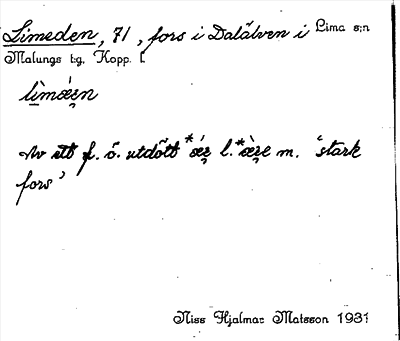 Limeden, 71, fors i Dalälven i Lima s:n
Malungs tg, Kopp. l.
lìmǽẹn
Av ett f. ö. utdött *ǽẹ l. *æ̀ẹe m. 'stark
fors'
Niss Hjalmar Matsson 1931